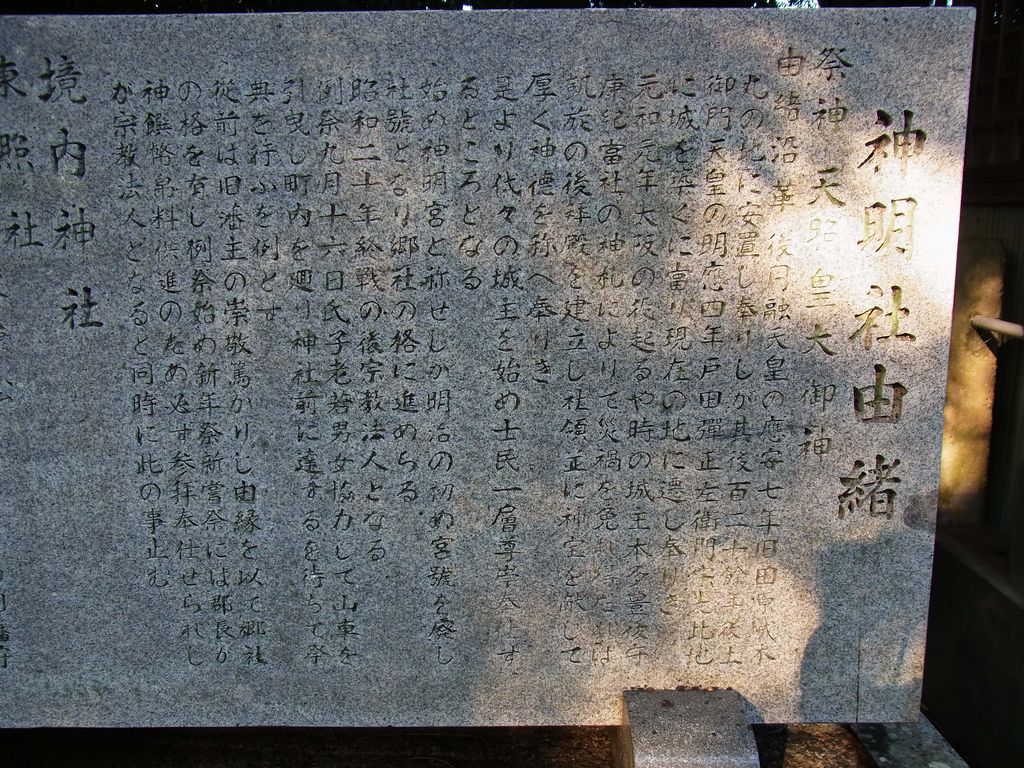 神明社由緒
祭神 天照皇大御神
由緒沿革 後円融天皇の應安七年旧田原城本
丸の地に安置し奉りしが其後百二十餘年後土
御門天皇の明應四年戸田彈正左衛門宗光此地
に城を築くに當り現在の地に遷し奉りき
元和元年大阪の役起るや時の城主本多豊後守
康紀當社の神札によりて災禍を免れ
凱旋の後拝殿を建立し社領正に神宝を献して
厚く神徳を称へ奉りき
是より代々の城主を始め士民一層尊崇奉仕す
るところとなる
始め神明宮と称せしか明治の初め宮號を廢し
社號となり郷社の格に進めらる
昭和二十年終戦の後宗教法人となる
例祭九月十六日氏子老若男女協力して山車を
引曳し町内を廻り神社前に達するを待ちて祭
典を行ふを例とす
従前は旧藩主の崇敬篤かりし由縁を以て郷社
の格を有し例祭始め新年祭新嘗祭には郡長が
神饌幣帛料供進のため必す参拝奉仕せられし
が宗教法人となると同時に此の事止む
境内神社
東照社